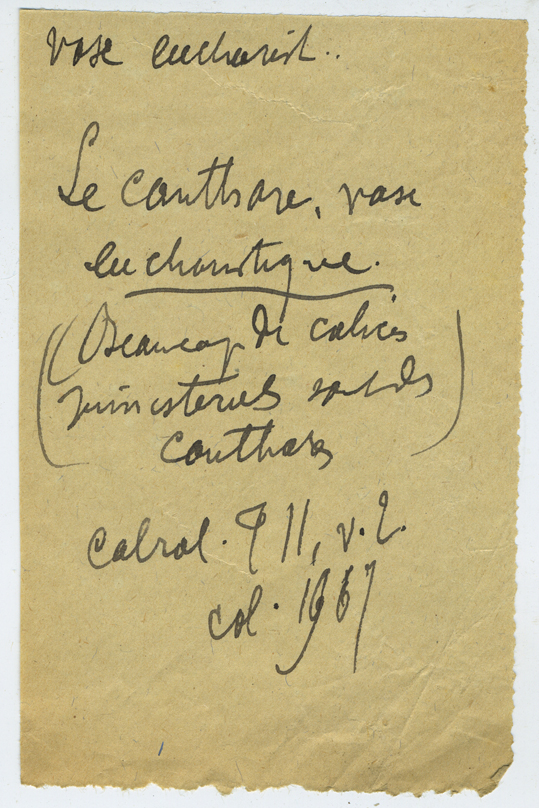 vase eucharist..
Le canthare, vase
eucharistique.
(Beaucoup de calices
ministeriels sont des
canthares)
Cabrol. T II, v. 2.
col. 1967